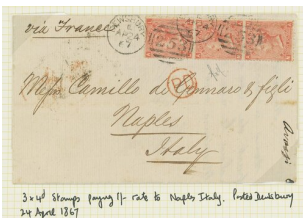 via France
Messrs Camillo de Gennaro & figli
Naples
Italy
PD
3 x 4d Stamps paying 1/- rate to Naples Italy. Posted Dewsbury
24 April 1867